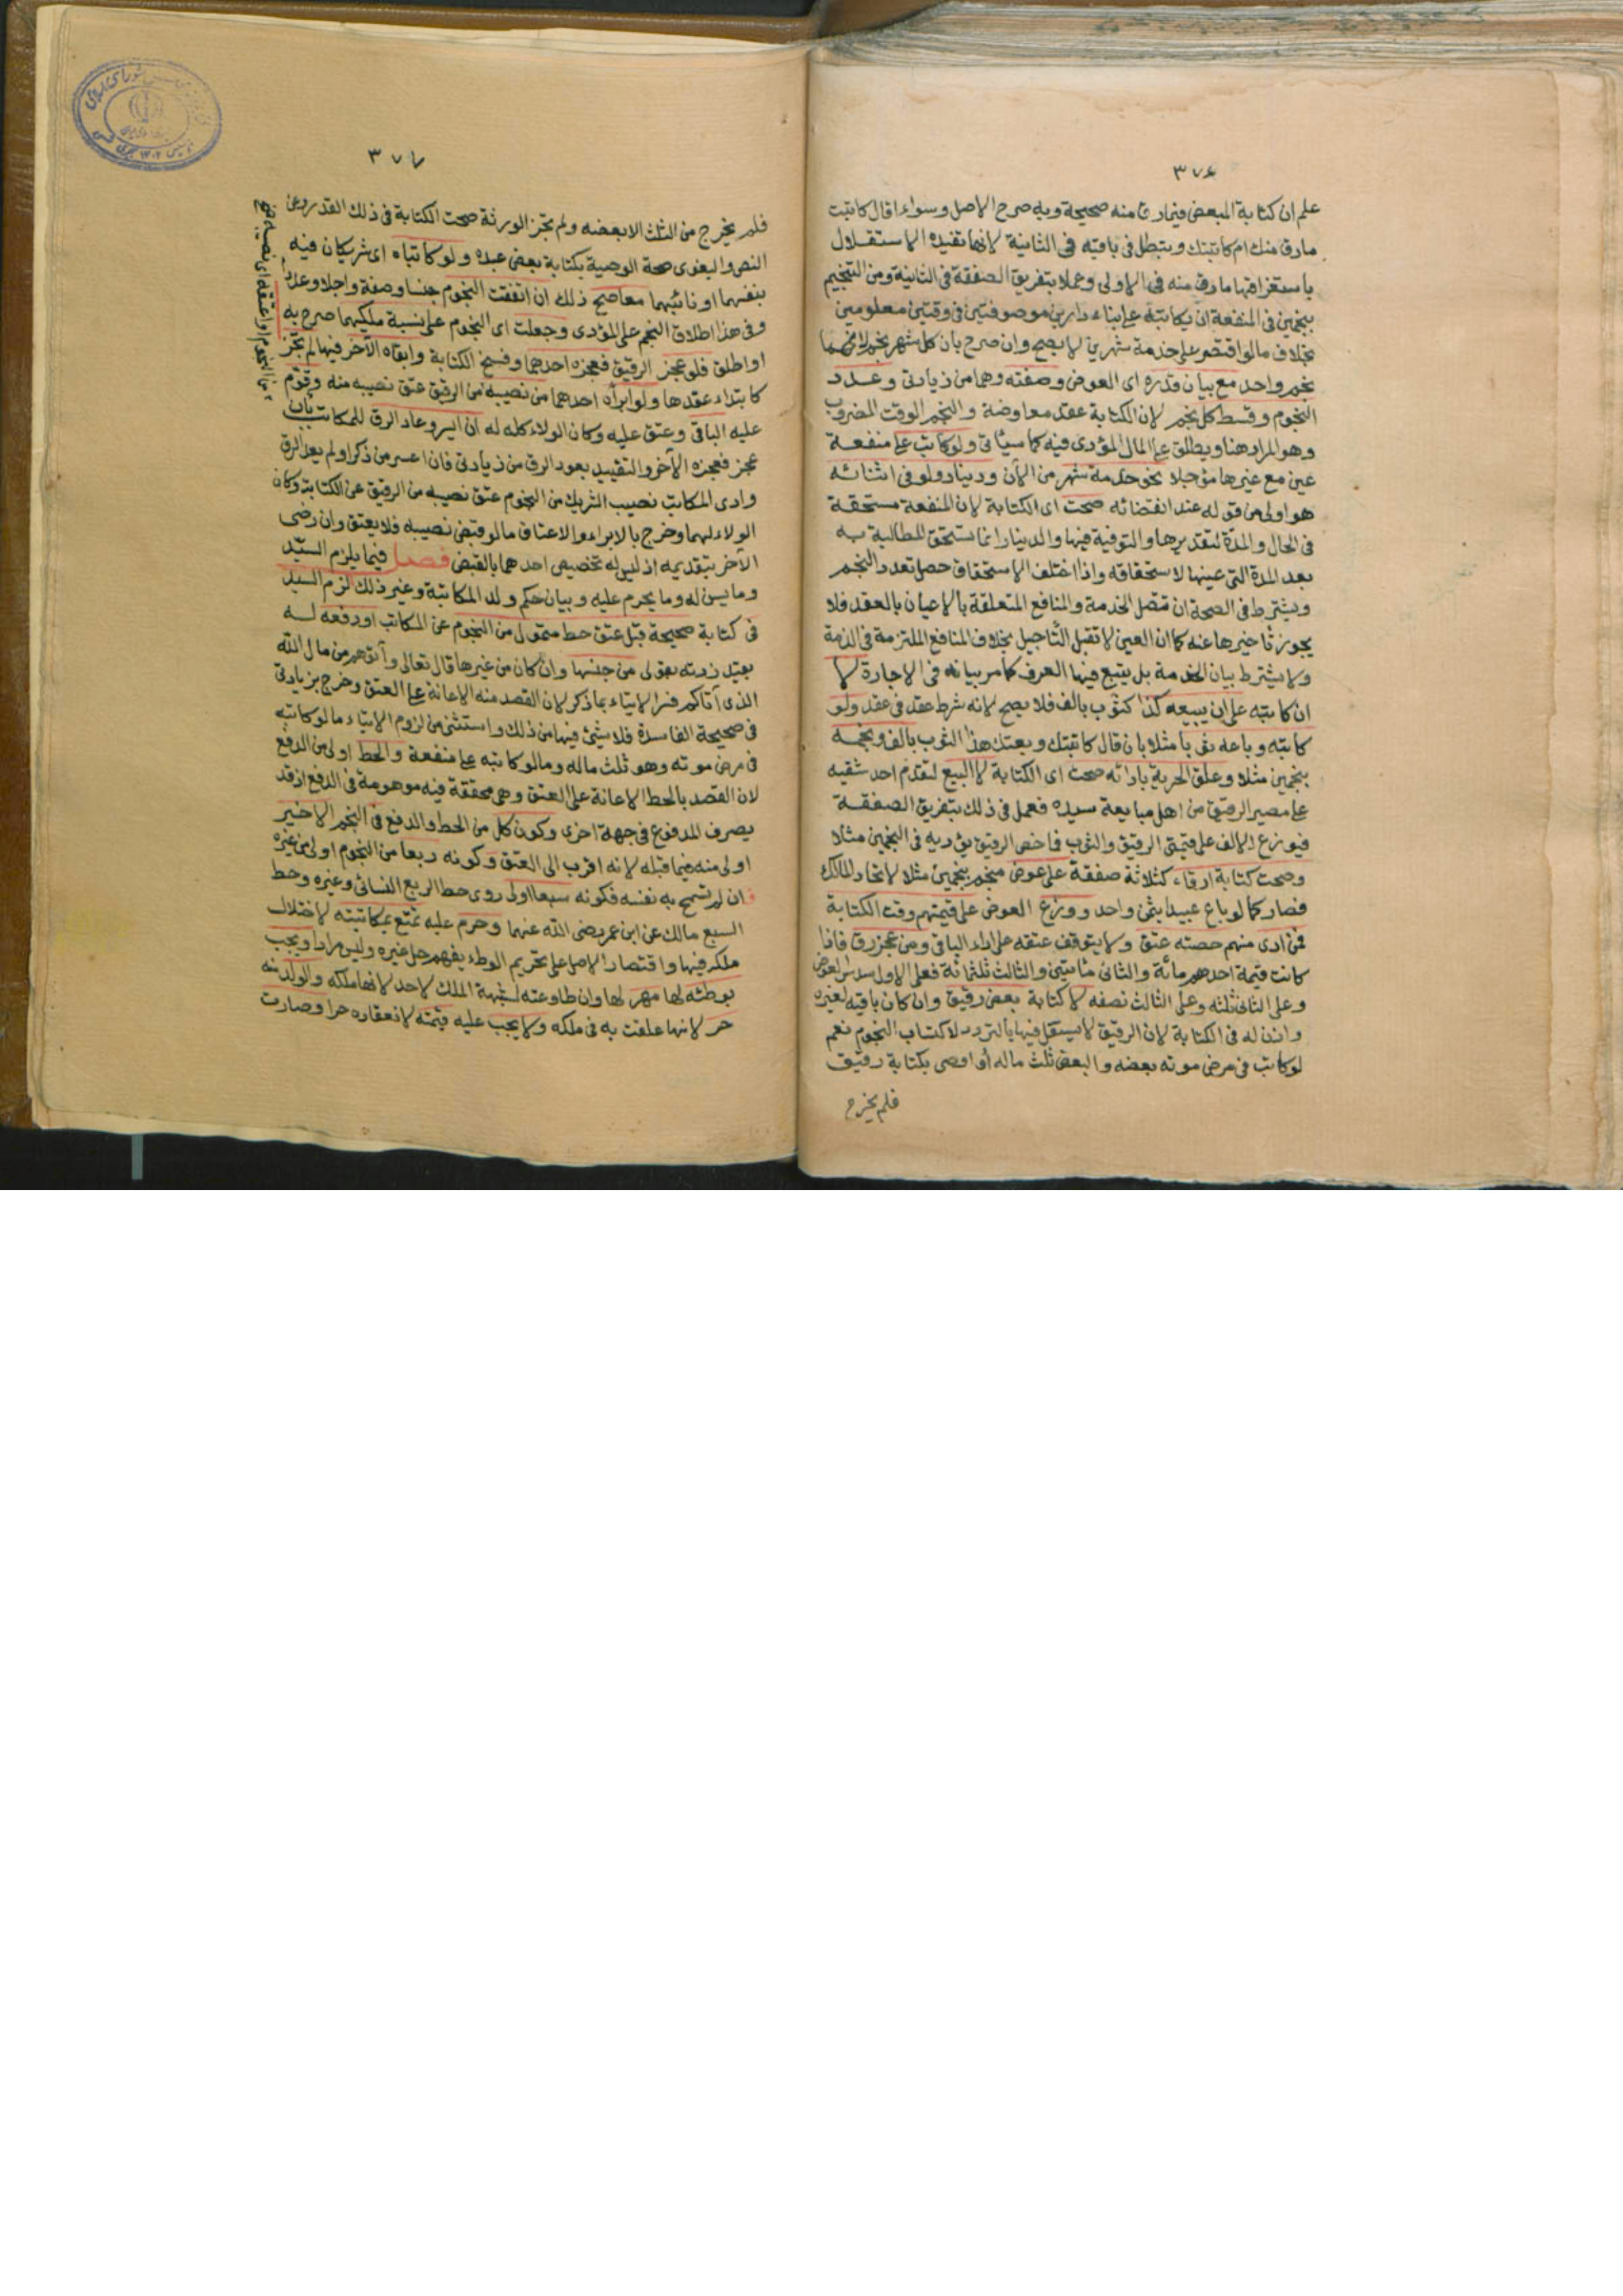 ٣٧٦
علم ان كتابة المبعض فيما رق منه صحيحة وبه صرح الاصل وسواء اقال كاتبت
مارق منك ام كاتبتك وتبطل فى باقيه فى الثانية لانها تفيده الاستقلال
باستغراقها مارق منه فى الاولى وعملا بتفريق الصفقة فى الثانية ومن التنجيم
بنجمين فى المنفعة ان يكاتبه على بناء دارين موصوفتين فى وقتين معلومين
بخلاف مالو اقتصر على خدمة شهرين لا يصح وان صرح بان كل شهر نجم لانهما
نجم واحد مع بيان قدره اى العوض وصفته وهما من زيادتى وعدد
النجوم وقسط كل نجم لان الكتابة عقد معاوضة والنجم الوقت المضروب
وهو المراد هنا ويطلق على المال المؤدى فيه كما سيأتى ولو كاتب على منفعة
عين مع غيرها مؤجلا نحو خدمة شهر من الآن ودينار ولو فى اثنائه
هو اولى من قوله عند انقضائه صحت اى الكتابة لان المنفعة مستحقة
فى الحال والمدة لتقديرها والتوفية فيها والدينار انما تستحق المطالبة به
بعد المدة التى عينها لاستحقاقه واذا اختلف الاستحقاق حصل تعدد النجم
ويشترط فى الصحة ان تتصل الخدمة والمنافع المتعلقة بالاعيان بالعقد فلا
يجوز تاخيرها عنه كما ان العين لا تقبل التاجيل بخلاف المنافع الملتزمة فى الذمة
ولا يشترط بيان الخدمة بل يتبع فيها العرف كما مر بيانه فى الاجارة لا
ان كاتبه على ان يبيعه كذا كثوب بالف فلا يصح لانه شرط عقد فى عقد ولو
كاتبه وباعه ثوبا مثلا بان قال كاتبتك وبعتك هذا الثوب بالف ونجمه
بنجمين مثلا وعلق الحرية بادائه صحت اى الكتابة لا البيع لتقدم احد شقيه
على مصير الرقيق من اهل مبايعة سيده فعمل فى ذلك بتفريق الصفقة
فيوزع الالف على قيمتى الرقيق والثوب فما خص الرقيق يؤديه فى النجمين مثلا
وصحت كتابة ارقاء كثلاثة صفقة على عوض منجم بنجمين مثلا لاتحاد المالك
فصار كما لو باع عبيدا بثمن واحد ووزع العوض على قيمتهم وقت الكتابة
فمن ادى منهم حصته عتق ولا يتوقف عتقه على اداء الباقى ومن عجز رق فاذا
كانت قيمة احدهم مائة والثانى مائتين والثالث ثلثمائة فعلى الاول سدس العوض
وعلى الثانى ثلثه وعلى الثالث نصفه لا كتابة بعض رقيق وان كان باقيه لغيره
واذن له فى الكتابة لان الرقيق لا يستقل فيها بالتردد لاكتساب النجوم نعم
لو كاتب فى مرض موته بعضه والبعض ثلث ماله أو اوصى بكتابة رقيق
فلم يخرج
٣٧٧
فلم يخرج من الثلث الا بعضه ولم تجز الورثة صحت الكتابة فى ذلك القدر وعن
النص والبغوى صحة الوصية بكتابة بعض عبده ولو كاتباه اى شريكان فيه
بنفسهما او نائبهما معا صح ذلك ان اتفقت النجوم جنسا وصفة واجلا وعددا
وفى هذا اطلاق النجم على المؤدى وجعلت اى النجوم على نسبة ملكيهما صرح به
او اطلق فلو عجز الرقيق فعجزه احدهما وفسخ الكتابة وابقاه الآخر فيها لم تجز
كابتداء عقدها ولو ابرأه احدهما من نصيبه من الرقيق عتق نصيبه منه وقوم
عليه الباقى وعتق عليه وكان الولاء كله له ان ايسر وعاد الرق للمكاتب بأن
عجز فعجزه الآخر والتقييد بعود الرق من زيادتى فان اعسر من ذكر او لم يعد الرق
وادى المكاتب نصيب الشريك من النجوم عتق نصيبه من الرقيق عن الكتابة وكان
الولاء لهما وخرج بالابراء والاعتاق مالو قبض نصيبه فلا يعتق وان رضى
الآخر بتقديمه اذ ليس له تخصيص احدهما بالقبض فصل فيما يلزم السيد
وما يسن له وما يحرم عليه وبيان حكم ولد المكاتبة وغير ذلك لزم السيد
فى كتابة صحيحة قبل عتق حط متمول من النجوم عن المكاتب او دفعه له
بعد من جنسها وان كان من غيرها قال تعالى وآتوهم من مال الله
الذى آتاكم فسر الايتاء بما ذكر لان القصد منه الاعانة على العتق وخرج بزيادتى
فى صحيحة الفاسدة فلا شئ فيها من ذلك واستثنى من لزوم الايتاء ما لو كاتبه
فى مرض موته وهو ثلث ماله ومالو كاتبه على منفعة والحط اولى من الدفع
لان القصد بالحط الاعانة على العتق وهى محققة فيه موهومة فى الدفع اذ قد
يصرف المدفوع فى جهة اخرى وكون كل من الحط والدفع فى النجم الاخير
اولى منه فيما قبله لانه اقرب الى العتق وكونه ربعا من النجوم اولى من غيره
ان لم تسمح به نفسه فكونه سبعا اولى روى حط الربع النسائى وغيره وحط
السبع مالك عن ابن عمر رضى الله عنهما وحرم عليه تمتع بمكاتبته لاختلال
ملكه فيها واقتصار الاصل على تحريم الوطء يفهم حل غيره وليس مرادا ويجب
بوطئه لها مهر لها وان طاوعته لشبهة الملك لا حد لانها ملكه والولد منه
حر لانها علقت به فى ملكه ولا يجب عليه قيمته لانعقاده حرا وصارت
من النجوم او اعتقه اى نصيبه